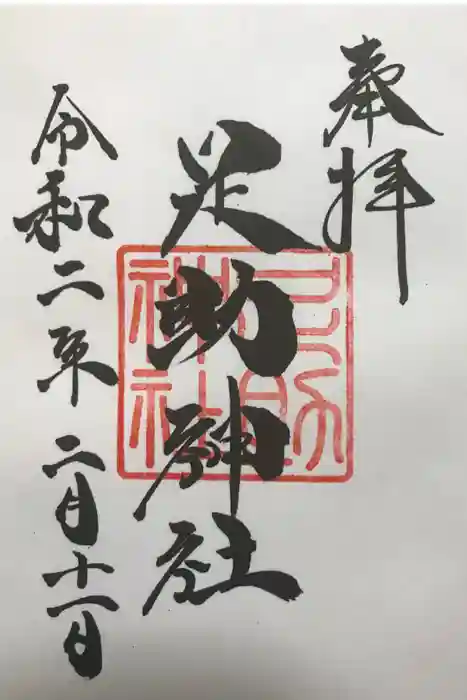 奉拝
足助神社
足助神社
令和二年二月十一日